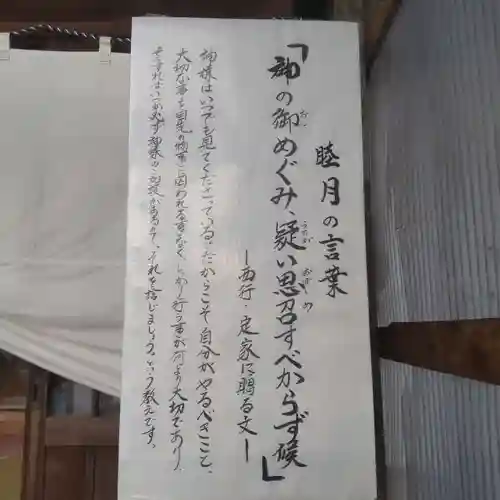 睦月の言葉
「神の御めぐみ、疑い思召すべからず候」
―西行・定家に贈る文―
神様はいつでも見てくださっている。だからこそ自分がやるべきこと、
大切な事を目先の物事に囚われる事なく、しっかり行う事が何より大切であり、
そうすればいつか必ず神様のご加護があるので、それを信じましょう。という教えです。